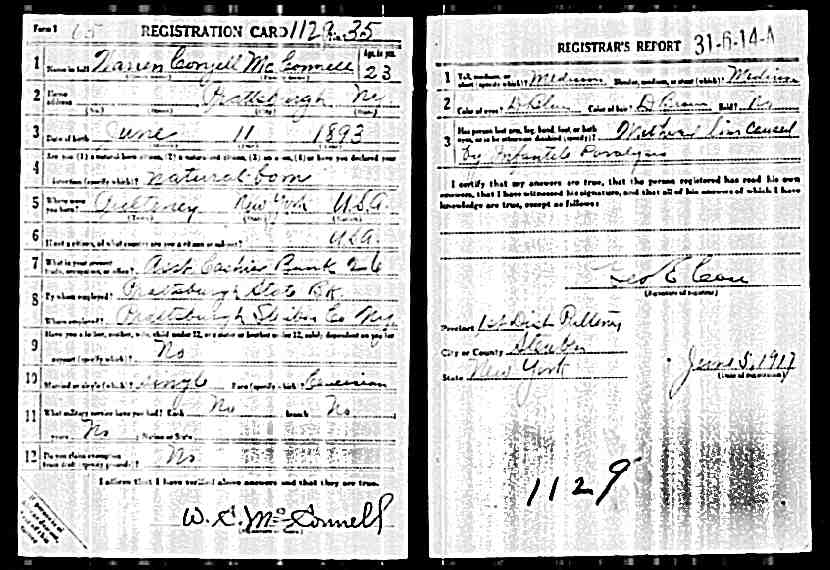 Form 1
REGISTRATION CARD 1129.35
1 Name in full Warren Coryell McConnell Age, in yrs. 23
2 Home address Prattsburgh
3 Date of birth June 11 1893
4 Are you (1) a natural born citizen, (2) a naturalized citizen, (3) an alien, (4) or have you declared your
intention (specify which)? Natural-born
5 Where were you born? Pulteney New York U.S.A.
6 If not a citizen, of what country are you a citizen or subject? U.S.A.
7 What is your present trade, occupation, or office? Asst Cashier Bank 26
8 By whom employed? Prattsburgh State Bk
Where employed? Prattsburgh Steuben Co
9 Have you a father, mother, wife, child under 12, or a sister or brother under 12, solely dependent on you for
support (specify which)? No
10 Married or single (which)? Single Race (specify which)? Caucasian
11 What military service have you had? Rank No branch No
years No Nation or State
12 Do you claim exemption from draft (specify grounds)? No
I affirm that I have verified above answers and that they are true.
W. C. McConnell
REGISTRAR'S REPORT 31-6-14-A
1 Tall, medium, or short (specify which)? Medium Slender, medium, or stout (which)? Medium
2 Color of eyes? D Blue Color of hair? D Brown Bald? No
3 Has person lost arm, leg, hand, foot, or both
eyes, or is he otherwise disabled (specify)? caused
by Infantile Paralysis
I certify that my answers are true, that the person registered has read his own
answers, that I have witnessed his signature, and that all of his answers of which I have
knowledge are true, except as follows:
Geo
(Signature of registrar)
Precinct 1st Dist Pulteney
City or County Steuben
State New York
June 5, 1917
(Date of registration)
1129